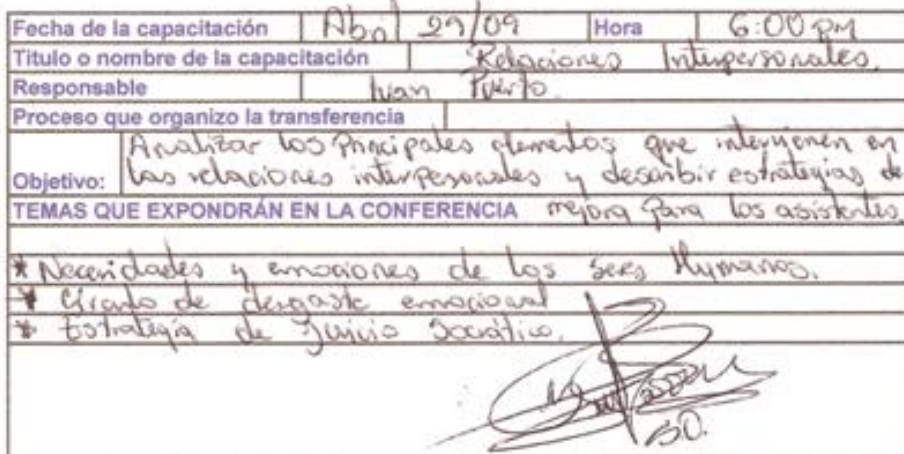 Fecha de la capacitación Abril 29/09 Hora 6:00 pm
Titulo o nombre de la capacitación Relaciones Interpersonales.
Responsable Ivan Puerto.
Proceso que organizo la transferencia
Analizar los Principales elementos que intervienen en
Objetivo: las relaciones interpersonales y describir estrategias de
TEMAS QUE EXPONDRÁN EN LA CONFERENCIA mejora para los asistentes.
* Necesidades y emociones de los seres Humanos.
* Circulo de desgaste emocional
* Estrategia de Juicio Socrático.